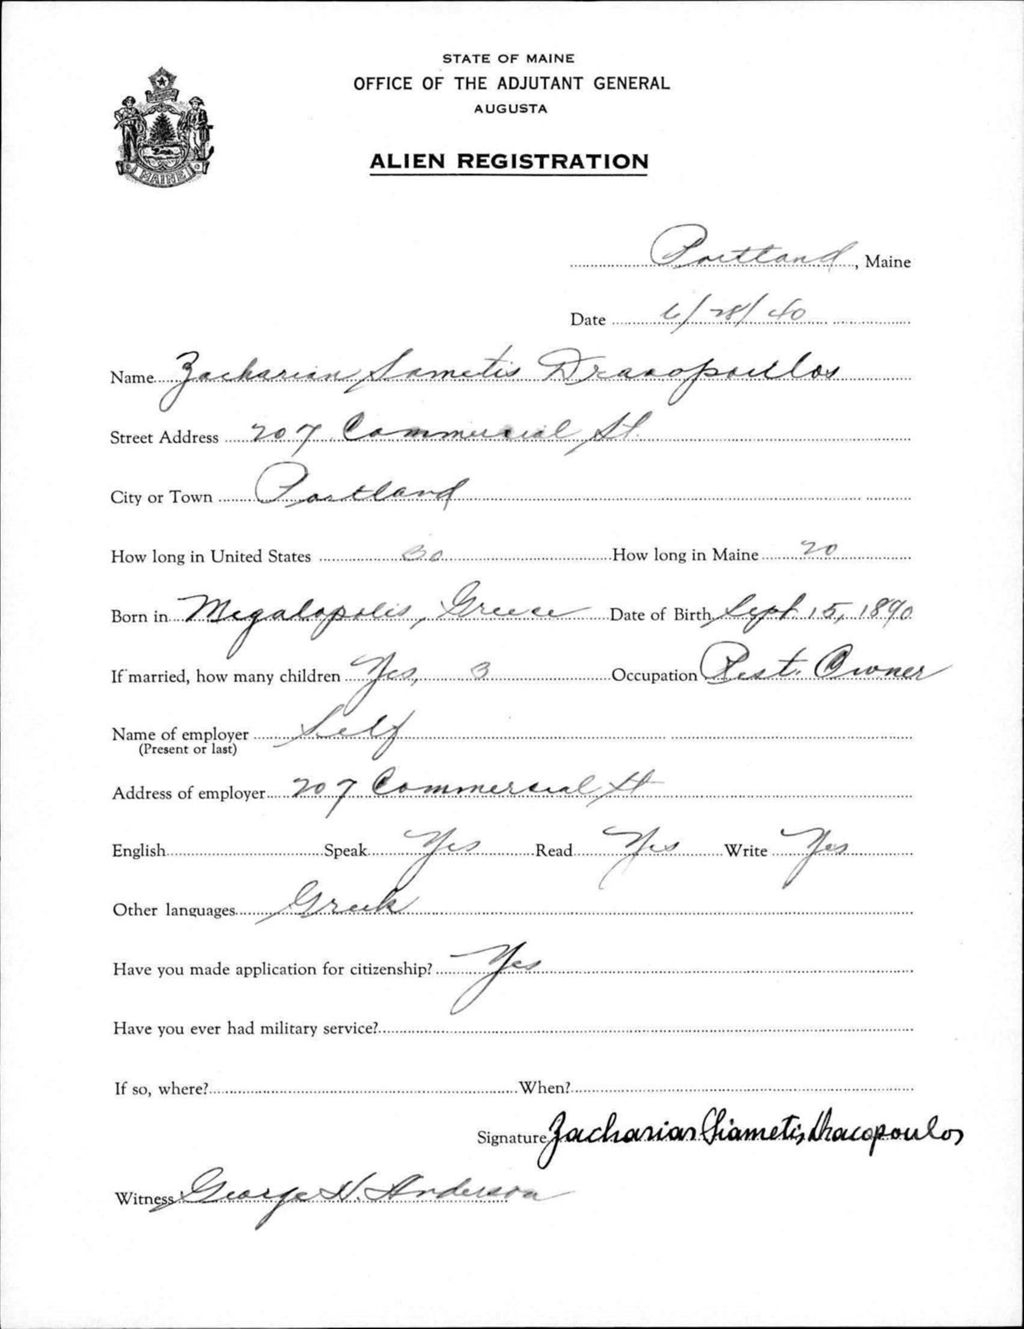 STATE OF MAINE
OFFICE OF THE ADJUTANT GENERAL
AUGUSTA
ALIEN REGISTRATION
MAINE
Portland, Maine
Date 6/28/40
Name Zacharian Sametis Dracopoulos
Street Address 207 Commercial St.
City or Town Portland
How long in United States 30 How long in Maine 20
Born in Megalopolis, Greece Date of Birth Sept. 15, 1890
If married, how many children Yes, 3 Occupation Rest. Owner
Name of employer Self
(Present or last)
Address of employer 207 Commercial St
English Speak Yes Read Yes Write Yes
Other languages Greek
Have you made application for citizenship? Yes
Have you ever had military service?
If so, where? When?
Signature Zacharias Siametis Dracopoulos
Witness George N. Anderson